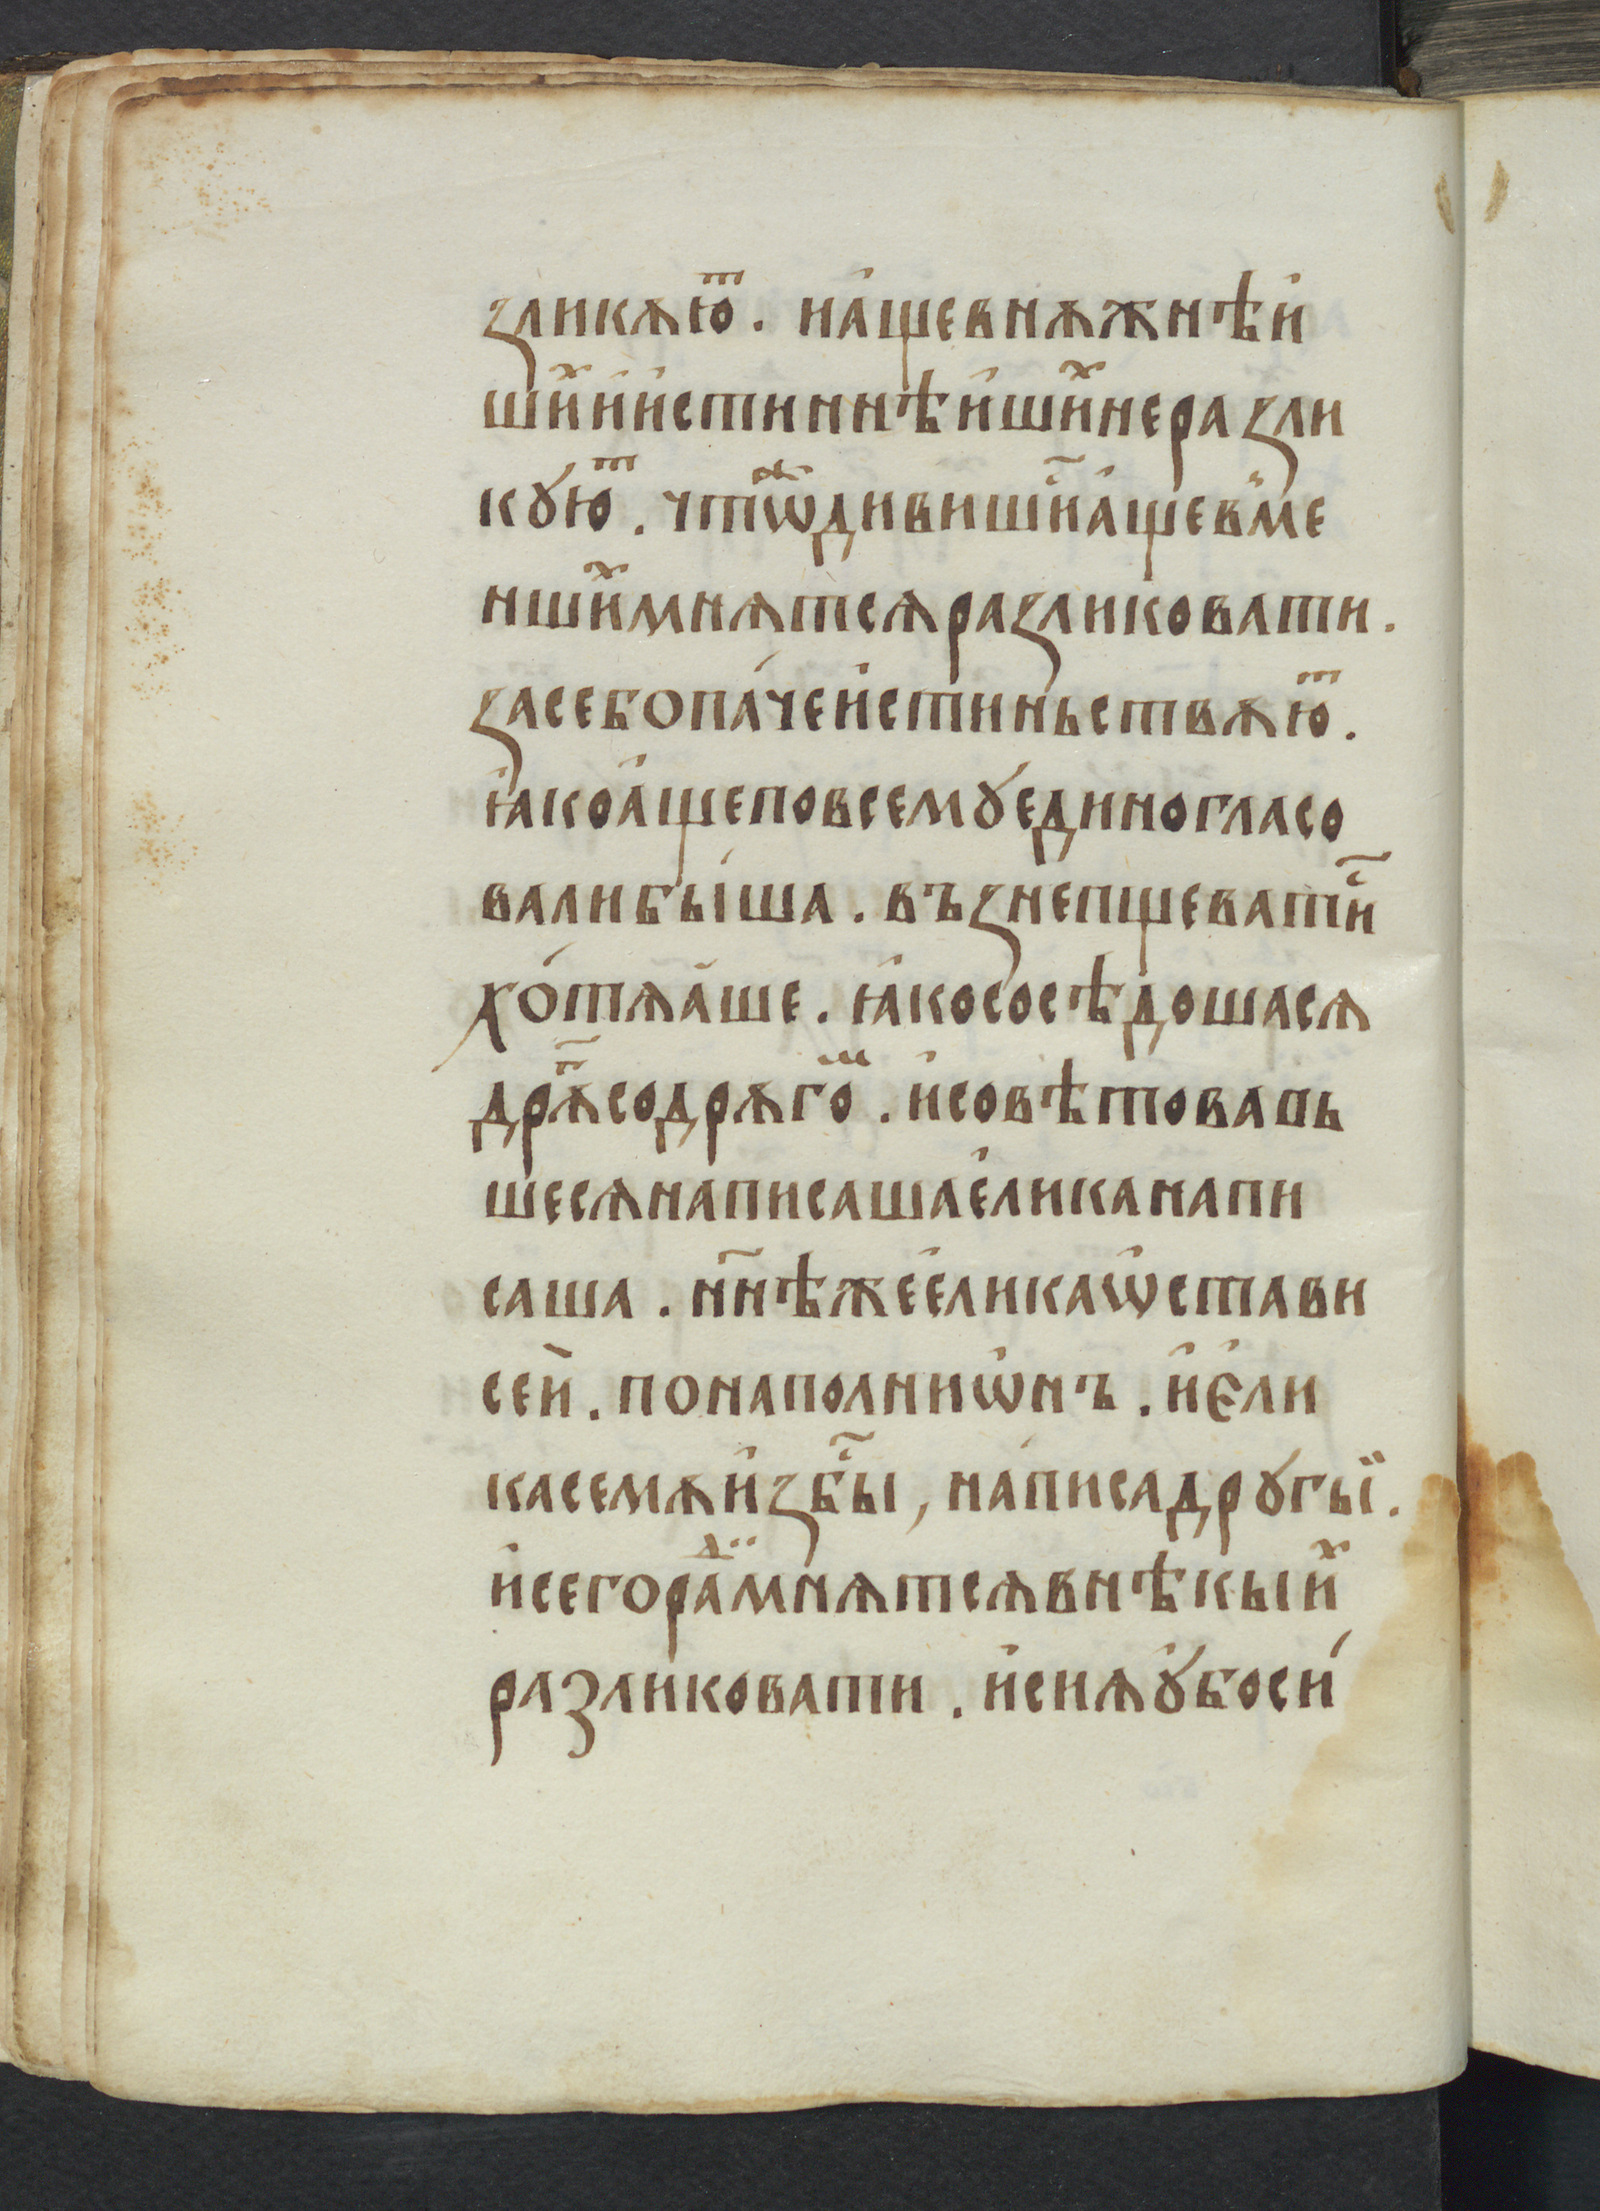 зликѫюⷮ. и҆а҆щевнѫжнѣи҆
ши҆ⷯи҆и҆стиннѣи҆ши҆ⷯнеразли
кꙋюⷮ. чтѡⷤдивиши҃а҆щев̾ме
нши҆ⷯмнѧтсѧразликовати.
засебопа́чеи҆стиньствѫюⷮ.
ꙗ҆коа҆щеповсемꙋединогласо
валибы́ша. възнепщевати҃
хо́тѧа҆ше. ꙗ҆кососѣдошасѧ
дрꙋⷢсодрѫгоⷨ. и҆совѣтовавь
шесѧнаписашае҆ликанапи
саша. нн҃ѣжее҆ликаѡ҆стави
сеи̇. понаполниѡ҆нъ. и҆е҆ли
касемѫи҆збы҃, на́писадрꙋгыӥ.
и҆сегораⷣмнѧтсѧвнѣкыи҆ⷯ
разликовати. и҆сиѧꙋ҆боси́